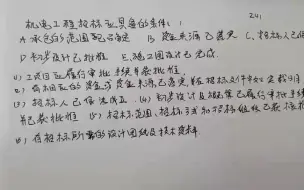 机电工程招标应具备的条件：( 241
A 承包的范围已确定 B. 资金来源已落实 C. 招标人已
D 初步设计已批准 E. 施工图设计已完成.
(1) 工程项目应履行审批手续并获批准,
(2) 有相应的资金或资金来源已落实,并在招标文件中如实载明
(3) 招标人已依法成立. (4) 初步设计及概算已履行审批手续
并已获批准 (5) 招标范围、招标方式和招标组织已获核准
(6) 有招标所需的设计图纸及技术资料